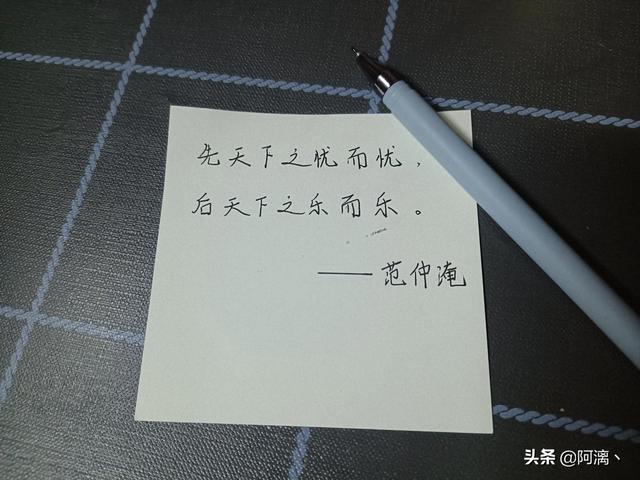 先天下之忧而忧，
后天下之乐而乐。
——范仲淹
头条 @阿漓丶